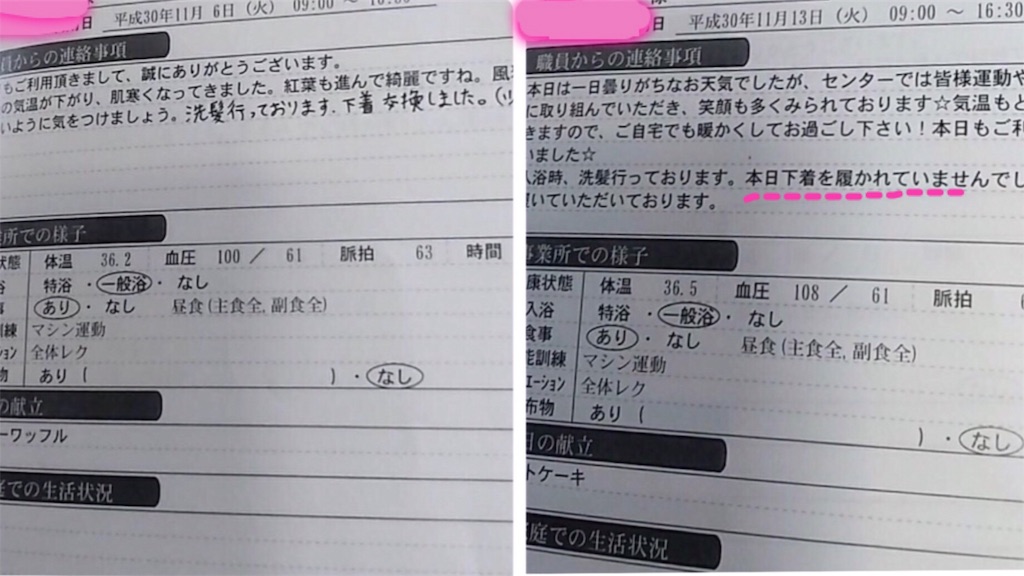 平成30年11月 6日（火） 09:00 ～
員からの連絡事項
もご利用頂きまして、誠にありがとうございます。
の気温が下がり、肌寒くなってきました。紅葉も進んで綺麗ですね。風
いように気をつけましょう。洗髪行っております。下着交換しました。
所での様子
状態 体温 36.2 血圧 100 ／ 61 脈拍 63 時間
浴 特浴 ・ 一般浴 ・ なし
事 あり ・ なし 昼食(主食全, 副食全)
訓練 マシン運動
ション 全体レク
物 あり ( ) ・ なし
の献立
ーワッフル
庭での生活状況
日 平成30年11月13日（火） 09:00 ～ 16:30
職員からの連絡事項
本日は一日曇りがちなお天気でしたが、センターでは皆様運動や
に取り組んでいただき、笑顔も多くみられております☆気温もと
きますので、ご自宅でも暖かくしてお過ごし下さい！本日もご利
いました☆
入浴時、洗髪行っております。本日下着を履かれていませんでし
履いていただいております。
事業所での様子
康状態 体温 36.5 血圧 108 ／ 61 脈拍
入浴 特浴 ・ 一般浴 ・ なし
食事 あり ・ なし 昼食(主食全, 副食全)
能訓練 マシン運動
エーション 全体レク
布物 あり ( ) ・ なし
日の献立
トケーキ
庭での生活状況